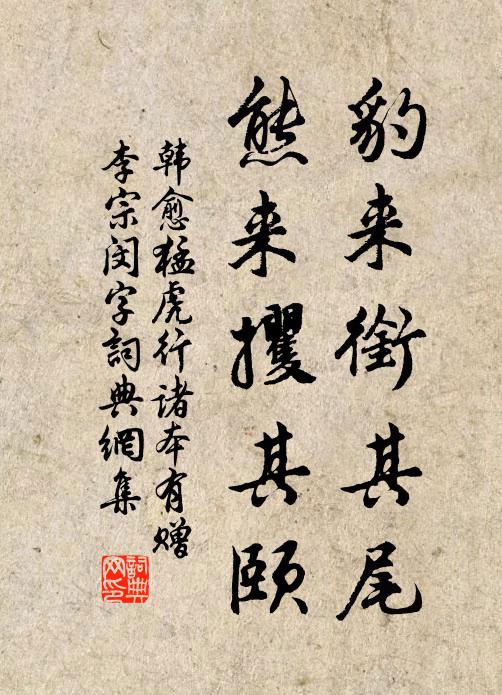 豹来銜其尾
熊来攫其颐
韩愈猛虎行诸本有赠
李宗闵字詞典網集
詞典网印